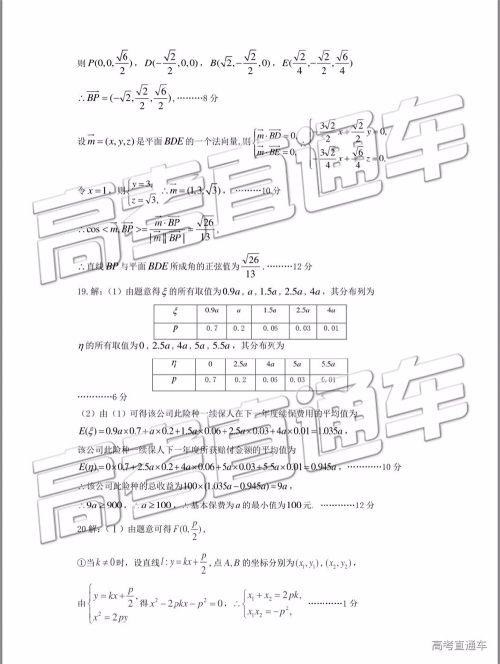 则 P(0,0,√6/2), D(-√2/2,0,0), B(√2,-√2/2,0), E(√2/4,-√2/2,√6/4)
∴BP=(-√2,√2/2,√6/2),………8分
设m=(x,y,z)是平面BDE的一个法向量,则{m·BD=0, m·BE=0, {-3√2/2 x+√2/2 y=0, -3√2/4 x+√6/4 z=0.
令x=1, 则{y=3, z=√3, ∴m=(1,3,√3), ………10分
∴cos<m,BP>=m·BP/|m||BP|=√26/13,
∴直线BP与平面BDE所成角的正弦值为√26/13.………12分
19.解:(1)由题意得ξ的所有取值为0.9a, a, 1.5a, 2.5a, 4a, 其分布列为
ξ 0.9a a 1.5a 2.5a 4a
p 0.7 0.2 0.06 0.03 0.01
η的所有取值为0, 2.5a, 4a, 5a, 5.5a, 其分布列为
η 0 2.5a 4a 5a 5.5a
p 0.7 0.2 0.06 0.03 0.01
…………6分
(2)由(1)可得该公司此险种一续保人在下一年度续保费用的平均值为
E(ξ)=0.9a×0.7+a×0.2+1.5a×0.06+2.5a×0.03+4a×0.01=1.035a,
该公司此险种一续保人下一年度所获赔付金额的平均值为
E(η)=0×0.7+2.5a×0.2+4a×0.06+5a×0.03+5.5a×0.01=0.945a, …………10分
∴该公司此险种的总收益为100×(1.035a-0.945a)=9a,
∴9a≥900, ∴a≥100, ∴基本保费为a的最小值为100元. …………12分
20.解:(Ⅰ)由题意可得F(0,p/2),
①当k≠0时,设直线l:y=kx+p/2,点A,B的坐标分别为(x₁,y₁),(x₂,y₂),
由{y=kx+p/2, x²=2py 得x²-2pkx-p²=0, ∴{x₁+x₂=2pk, x₁x₂=-p², …………1分
高考直通车
高考直通车
高考直通车